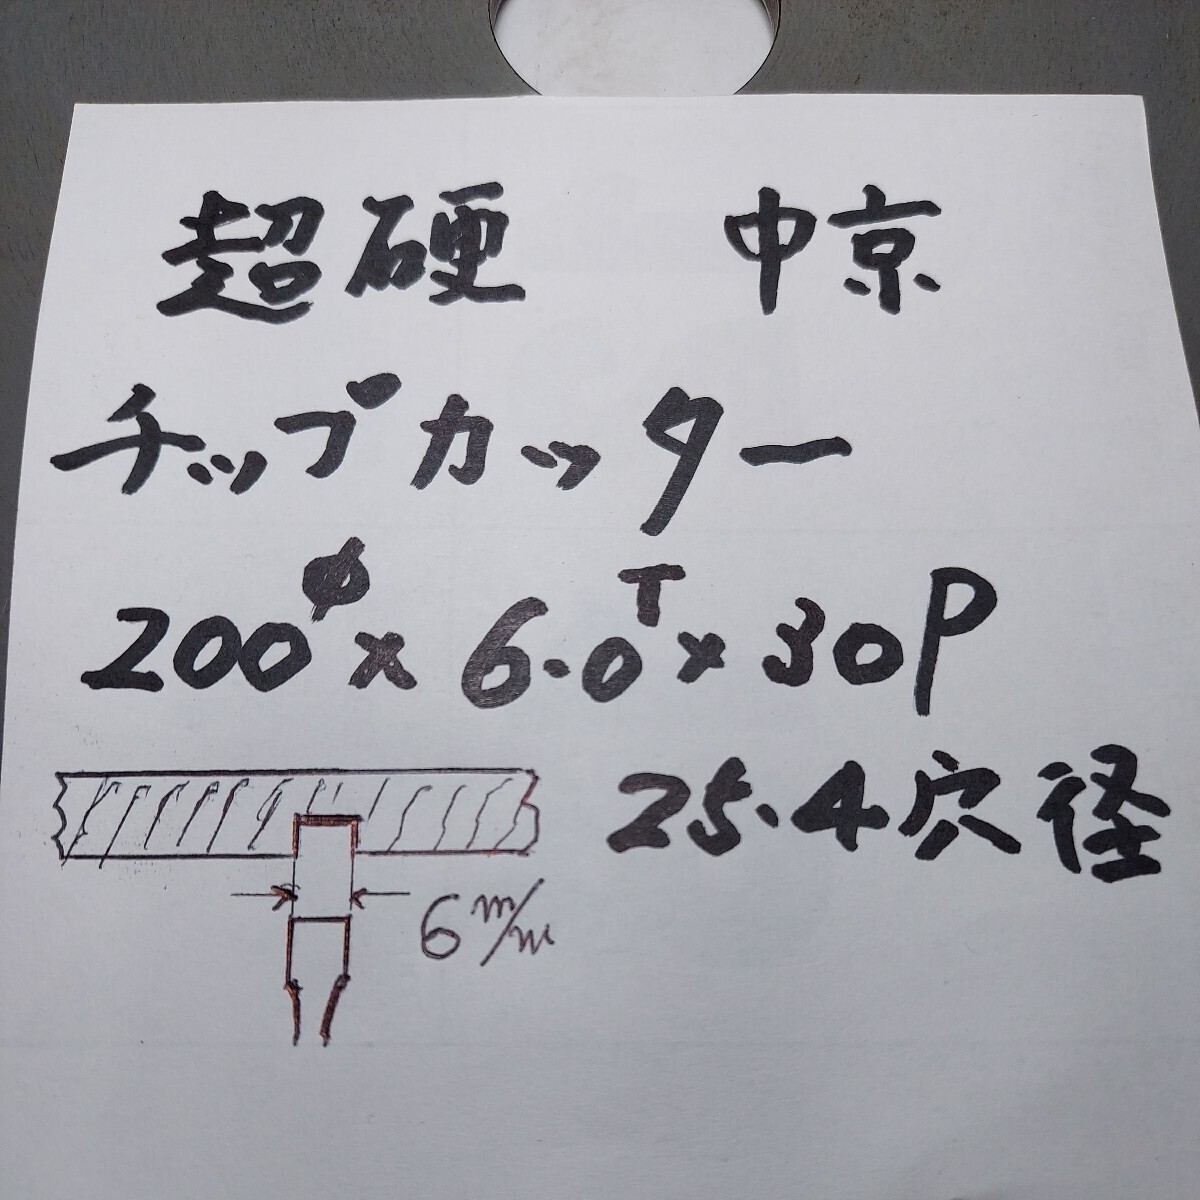 超硬 中京
チップカッター
200φ×6.0T×30P
25.4穴径
6m/m